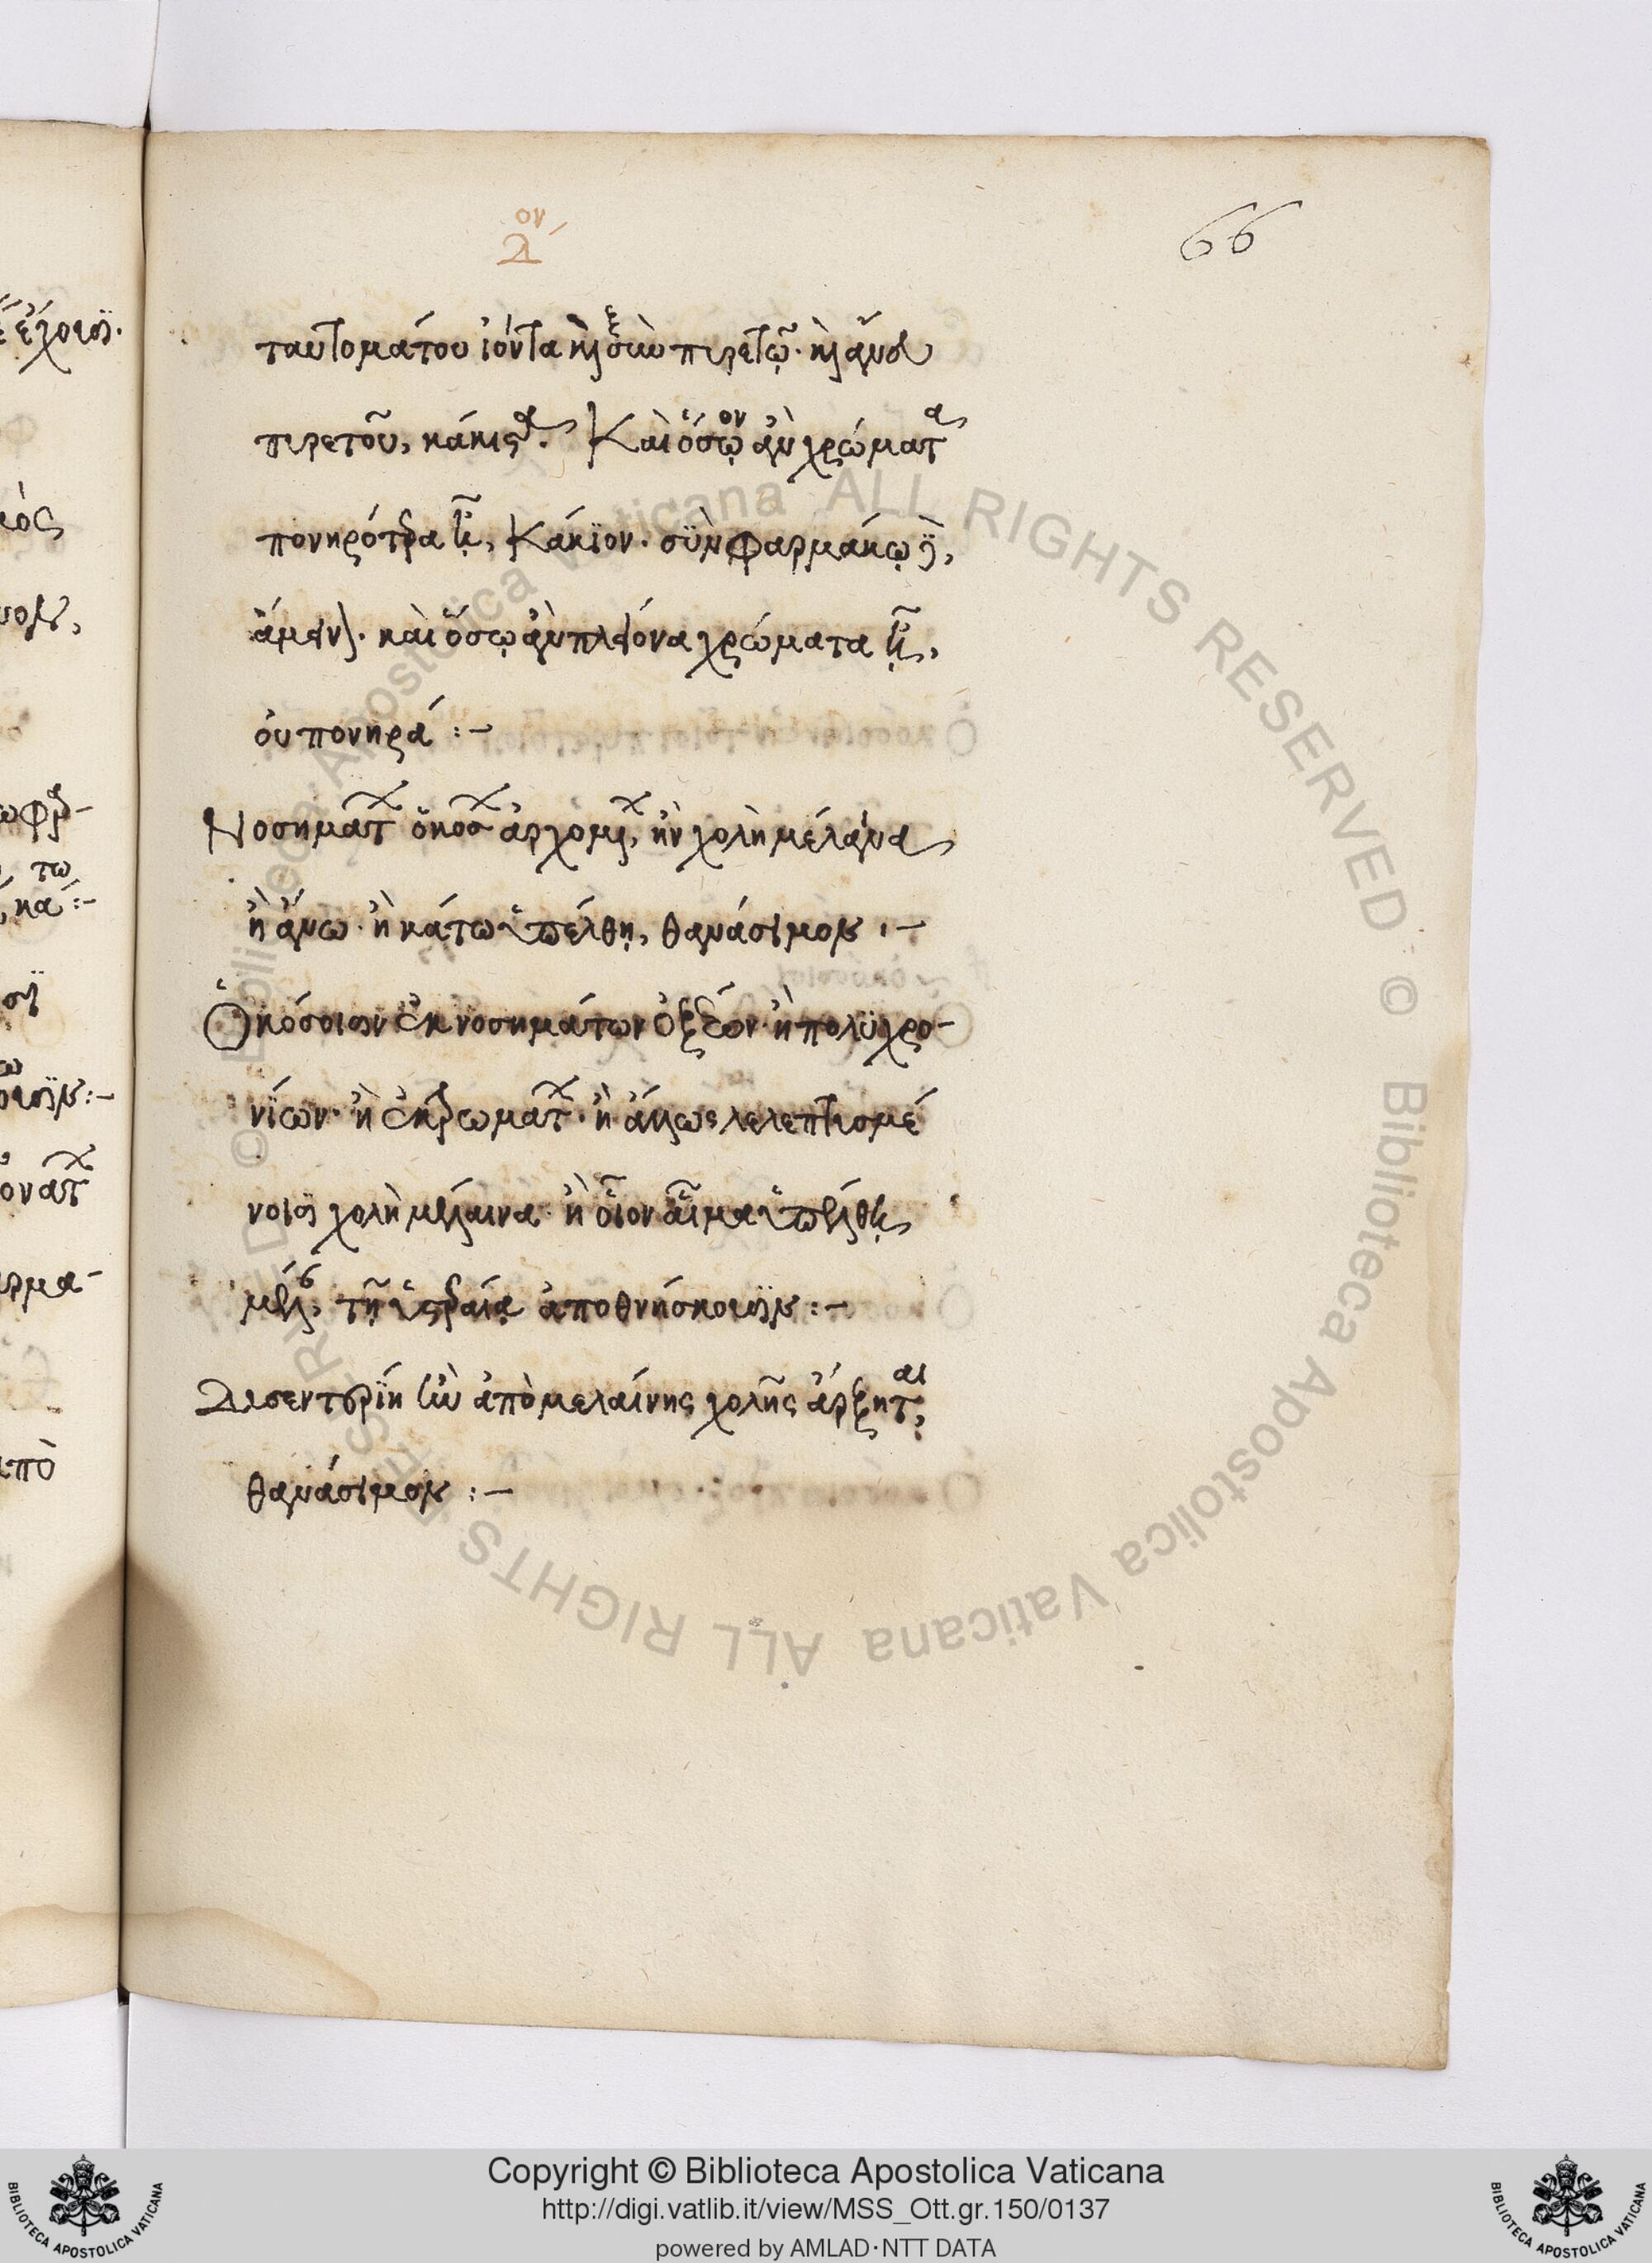 ον
λ
66
ταυτομάτου ἰόντα καὶ ξὺν πυρετῷ· καὶ ἄνευ
πυρετοῦ, κάκιστα. Καὶ ὅσῳον ἂν χρώματα
πονηρότερα ᾖ, κάκϊον. σὺν φαρμάκῳ δὲ,
ἄμεινον. καὶ ὅσῳ ἂν πλείονα χρώματα ᾖ,
οὐ πονηρά :-
Νοσημάτων ὁκόσων ἀρχομένων, ἢν χολὴ μέλαινα
ἢ ἄνω· ἢ κάτω ὑπέλθῃ, θανάσιμον :-
Ὁκόσοισιν ἐκ νοσημάτων ὀξέων· ἢ πολϋχρο-
νίων· ἢ ἐκ τρωμάτων· ἢ ἄλλως λελεπτισμέ
νοισι χολὴ μέλαινα· ἢ οἷον αἷμα ὑπέλθῃ
μέλαν, τῇ ὑστεραίᾳ ἀποθνήσκουσιν :-
Δυσεντερίη ἢν ἀπὸ μελαίνης χολῆς ἄρξηται,
θανάσιμον :-
Copyright © Biblioteca Apostolica Vaticana
http://digi.vatlib.it/view/MSS_Ott.gr.150/0137
powered by AMLAD·NTT DATA